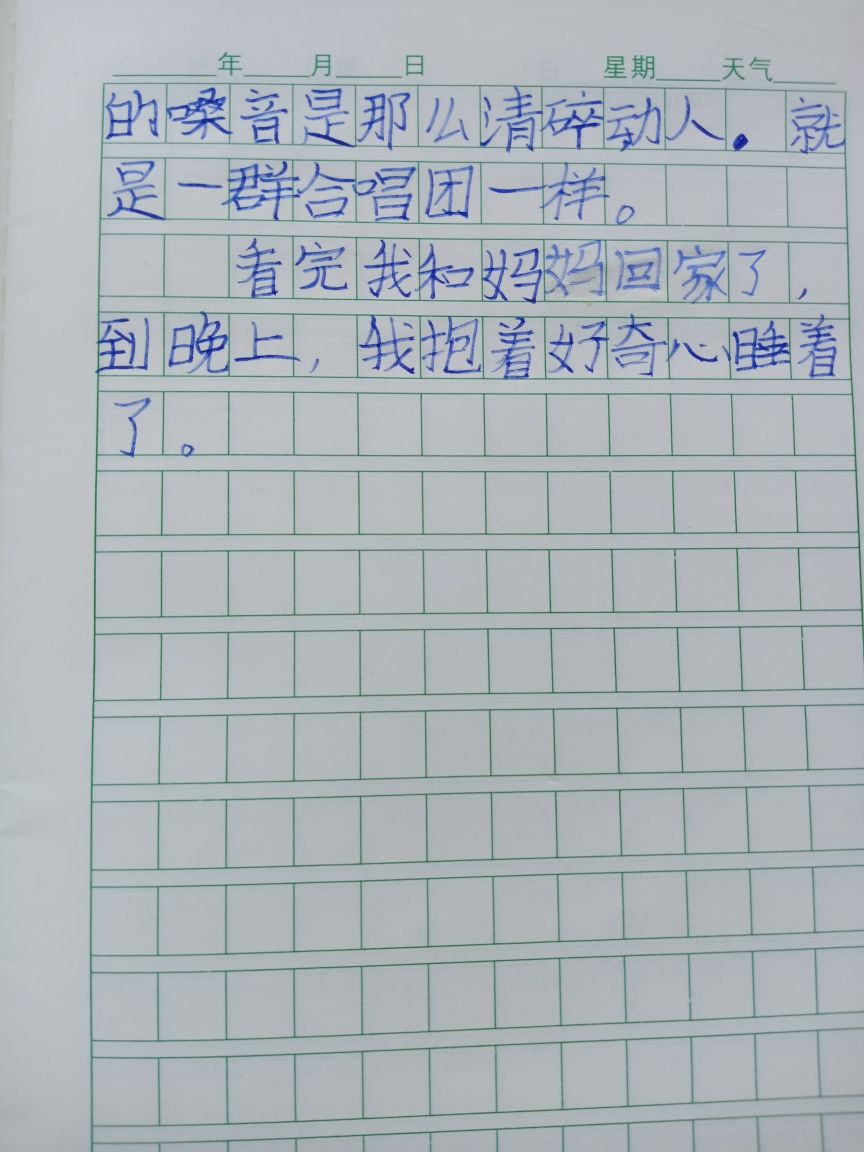 年 月 日 星期 天气
的嗓音是那么清碎动人。就
是一群合唱团一样。
看完我和妈妈回家了,
到晚上,我抱着好奇心睡着
了。